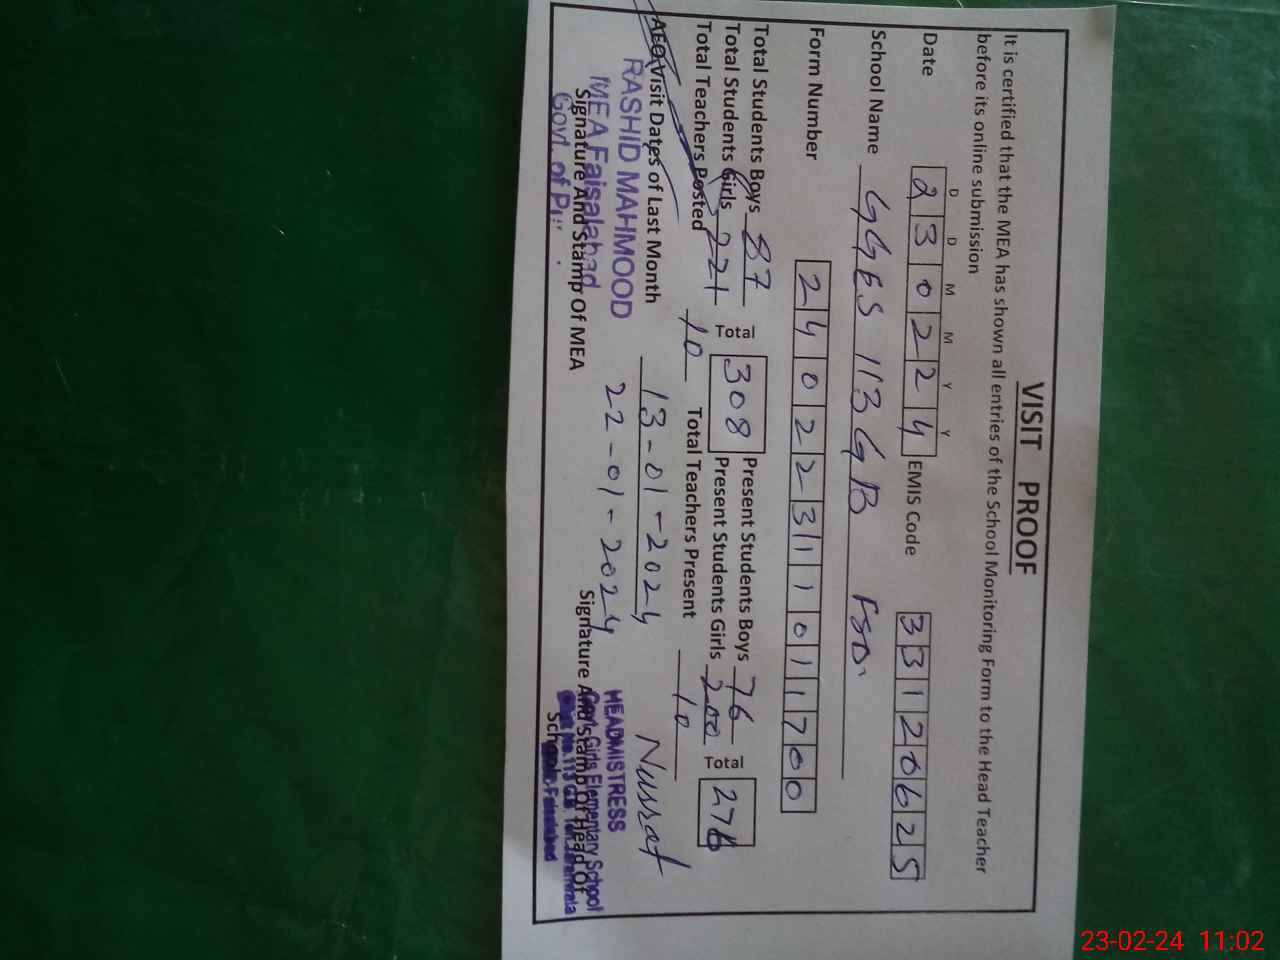 VISIT PROOF
It is certified that the MEA has shown all entries of the School Monitoring Form to the Head Teacher
before its online submission
D D M M Y Y
Date 2 3 0 2 2 4 EMIS Code 3 3 1 2 0 6 2 5
School Name GGES 113 GB FSD.
Form Number 2 4 0 2 2 3 1 1 0 1 1 7 0 0
Total Students Boys 87 Present Students Boys 76
Total 308 Total 276
Total Students Girls 221 Present Students Girls 200
Total Teachers Posted 10 Total Teachers Present 10
AEO Visit Dates of Last Month 13-01-2024
22-01-2024
Nusrat
RASHID MAHMOOD
MEA Faisalabad
Govt. of
Signature And Stamp Of MEA
HEADMISTRESS
Govt. Girls Elementary School
No.113 GB. Jaranwala
Faisalabad
Signature And Stamp Of Head Of
School
23-02-24 11:02